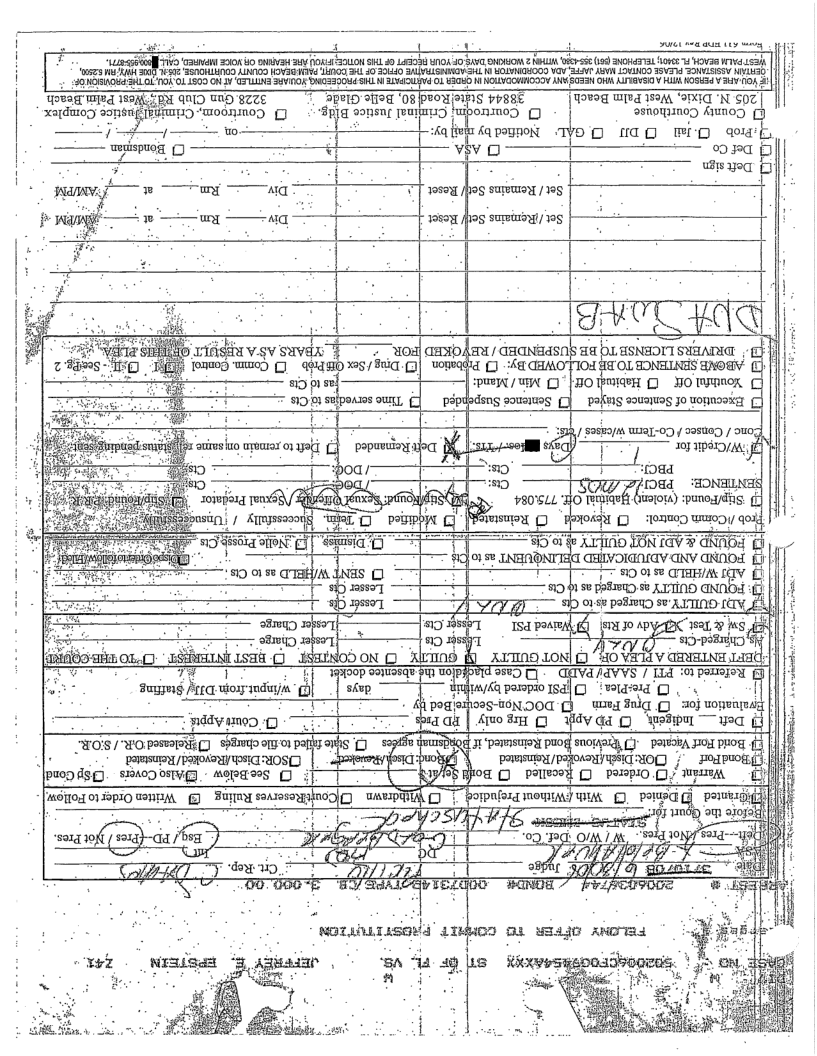 CASE NO 502006CF009454AXXX ST OF FL VS. JEFFREY E. EPSTEIN Z41
FELONY OFFER TO COMMIT PROSTITUTION
ARREST # 2006036744 BOND# TYPE/CB 3,000.00
Date Judge Crt. Rep.
Deft---Pres / Not Pres. W / W/O Def. Co. Esq / PD--(Pres / Not Pres.
Before the Court for:
Granted Denied With / Without Prejudice Withdrawn Court Reserves Ruling Written Order to Follow
Warrant Ordered Recalled Bond Set at $ See Below Also Covers Sp Cond
Bond Forf OR: Disch/Revoked / Reinstated Bond: Disch/Revoked SOR: Disch/Revoked / Reinstated
Bond Forf Vacated Previous Bond Reinstated, if Bondsman agrees State failed to file charges Released O.R. / S.O.R.
Deft --- Indigent PD Appt Hrg only PD Pres Court Appts
Evaluation for: Drug Farm DOC Non-Secure Bed by
Pre-Plea PSI ordered by/within days w/input from DJJ / Staffing
Referred to: PTI / SAAP / PADD Case placed on the absentee docket
DEFT ENTERED A PLEA OF: NOT GUILTY GUILTY NO CONTEST BEST INTEREST TO THE COURT
As Charged-Cts Lesser Cts Lesser Charge
Sw & Test Adv of Rts Waived PSI Lesser Cts Lesser Charge
ADJ GUILTY as Charged as to Cts Lesser Cts
FOUND GUILTY as Charged as to Cts Lesser Cts
ADJ W/HELD as to Cts SENT W/HELD as to Cts
FOUND AND ADJUDICATED DELINQUENT as to Cts Dispo Order to follow/Filed
FOUND & ADJ NOT GUILTY as to Cts Dismiss Nolle Prosse Cts
Prob / Comm Control: Revoked Reinstated Modified Term. Successfully / Unsuccessfully
Stip/Found: (violent) Habitual Off. 775.084 Stip/Found: Sexual Offender / Sexual Predator Stip/Found: P.R.R.
SENTENCE: PBCJ: mos Cts: / DOC: Cts:
PBCJ: Cts: / DOC: Cts:
W/Credit for 1 Days / Yrs. Deft Remanded Deft to remain on same rel status pending sent.
Conc / Consec / Co-Term w/cases / cts:
Execution of Sentence Stayed Sentence Suspended Time served as to Cts
Youthful Off Habitual Off Min / Mand: as to Cts
ABOVE SENTENCE TO BE FOLLOWED BY: Probation Drug / Sex Off Prob Comm. Control I II - See Pg. 2
DRIVERS LICENSE TO BE SUSPENDED / REVOKED FOR YEARS AS A RESULT OF THIS PLEA
DNA SWAB
Set / Remains Set / Reset Div Rm at AM/PM
Set / Remains Set / Reset Div Rm at AM/PM
Deft sign
Def Co ASA Bondsman
Prob Jail DJJ GAL Notified by mail by: on / /
County Courthouse Courtroom, Criminal Justice Bldg. Courtroom, Criminal Justice Complex
205 N. Dixie, West Palm Beach 38844 State Road 80, Belle Glade 3228 Gun Club Rd., West Palm Beach
IF YOU ARE A PERSON WITH A DISABILITY WHO NEEDS ANY ACCOMMODATION IN ORDER TO PARTICIPATE IN THIS PROCEEDING, YOU ARE ENTITLED, AT NO COST TO YOU, TO THE PROVISION OF
CERTAIN ASSISTANCE. PLEASE CONTACT MARY JAFFE, ADA COORDINATOR IN THE ADMINISTRATIVE OFFICE OF THE COURT, PALM BEACH COUNTY COURTHOUSE, 205 N. DIXIE HWY, RM 5.2500,
WEST PALM BEACH, FL 33401; TELEPHONE (561) 355-4380, WITHIN 2 WORKING DAYS OF YOUR RECEIPT OF THIS NOTICE; IF YOU ARE HEARING OR VOICE IMPAIRED, CALL 800-955-8771.
Form 611 HDR Rev 12/06